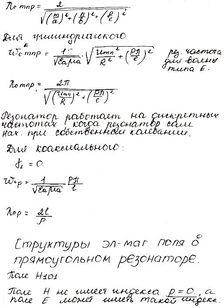 λ₀ mnp = 2 / √((m/a)² + (n/b)² + (p/l)²)
Для цилиндрического
W₀ mnp = 1/√εaμa · √(Umn²/R² + (pπ/l)²) рез. частота
для волны
типа E.
λ₀ mnp = 2π / √((Umn/R)² + (pπ/l)²)
Резонатор работает на дискретных
частотах, когда резонатор сам
нах. при собственной колебании.
Для коаксиального:
W₀p = 1/√εaμa pπ/l
λ₀p = 2l/p
Структуры эл-маг поля в
прямоугольном резонаторе.
Поле H101
Поле H не имеет индекса p=0, а
поле E может иметь такой индекс.